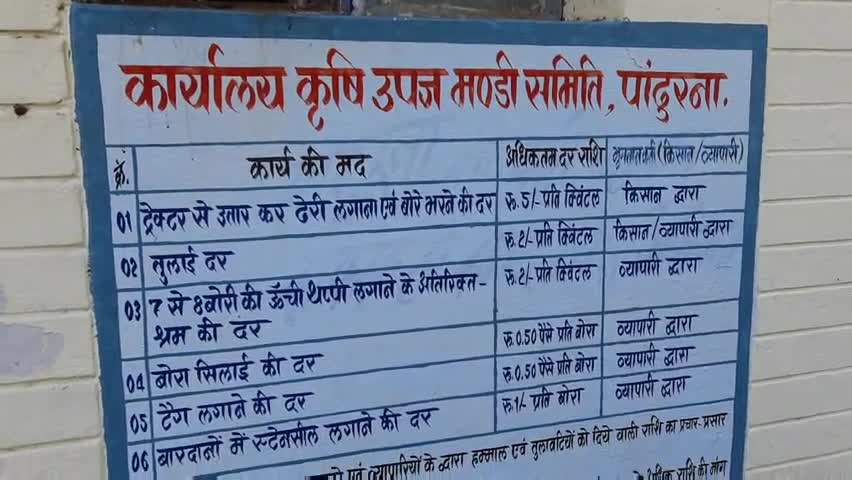 कार्यालय कृषि उपज मण्डी समिति, पांदुरना.
क्रं. कार्य की मद अधिकतम दर राशि भुगतानकर्ता (किसान/व्यापारी)
01 ट्रेक्टर से उतार कर ढेरी लगाना एवं बोरे भरने की दर रु. 5/- प्रति क्विंटल किसान द्वारा
02 तुलाई दर रु. 2/- प्रति क्विंटल किसान/व्यापारी द्वारा
03 7 से 8 बोरी की ऊँची थप्पी लगाने के अतिरिक्त- रु. 2/- प्रति क्विंटल व्यापारी द्वारा
श्रम की दर
04 बोरा सिलाई की दर रु. 0.50 पैसे प्रति बोरा व्यापारी द्वारा
05 टैग लगाने की दर रु. 0.50 पैसे प्रति बोरा व्यापारी द्वारा
06 बारदानों में स्टेनसील लगाने की दर रु. 1/- प्रति बोरा व्यापारी द्वारा
एवं व्यापारियों के द्वारा हम्माल एवं तुलावटियों को दिये वाली राशि का प्रचार-प्रसार
अधिक राशि की मांग